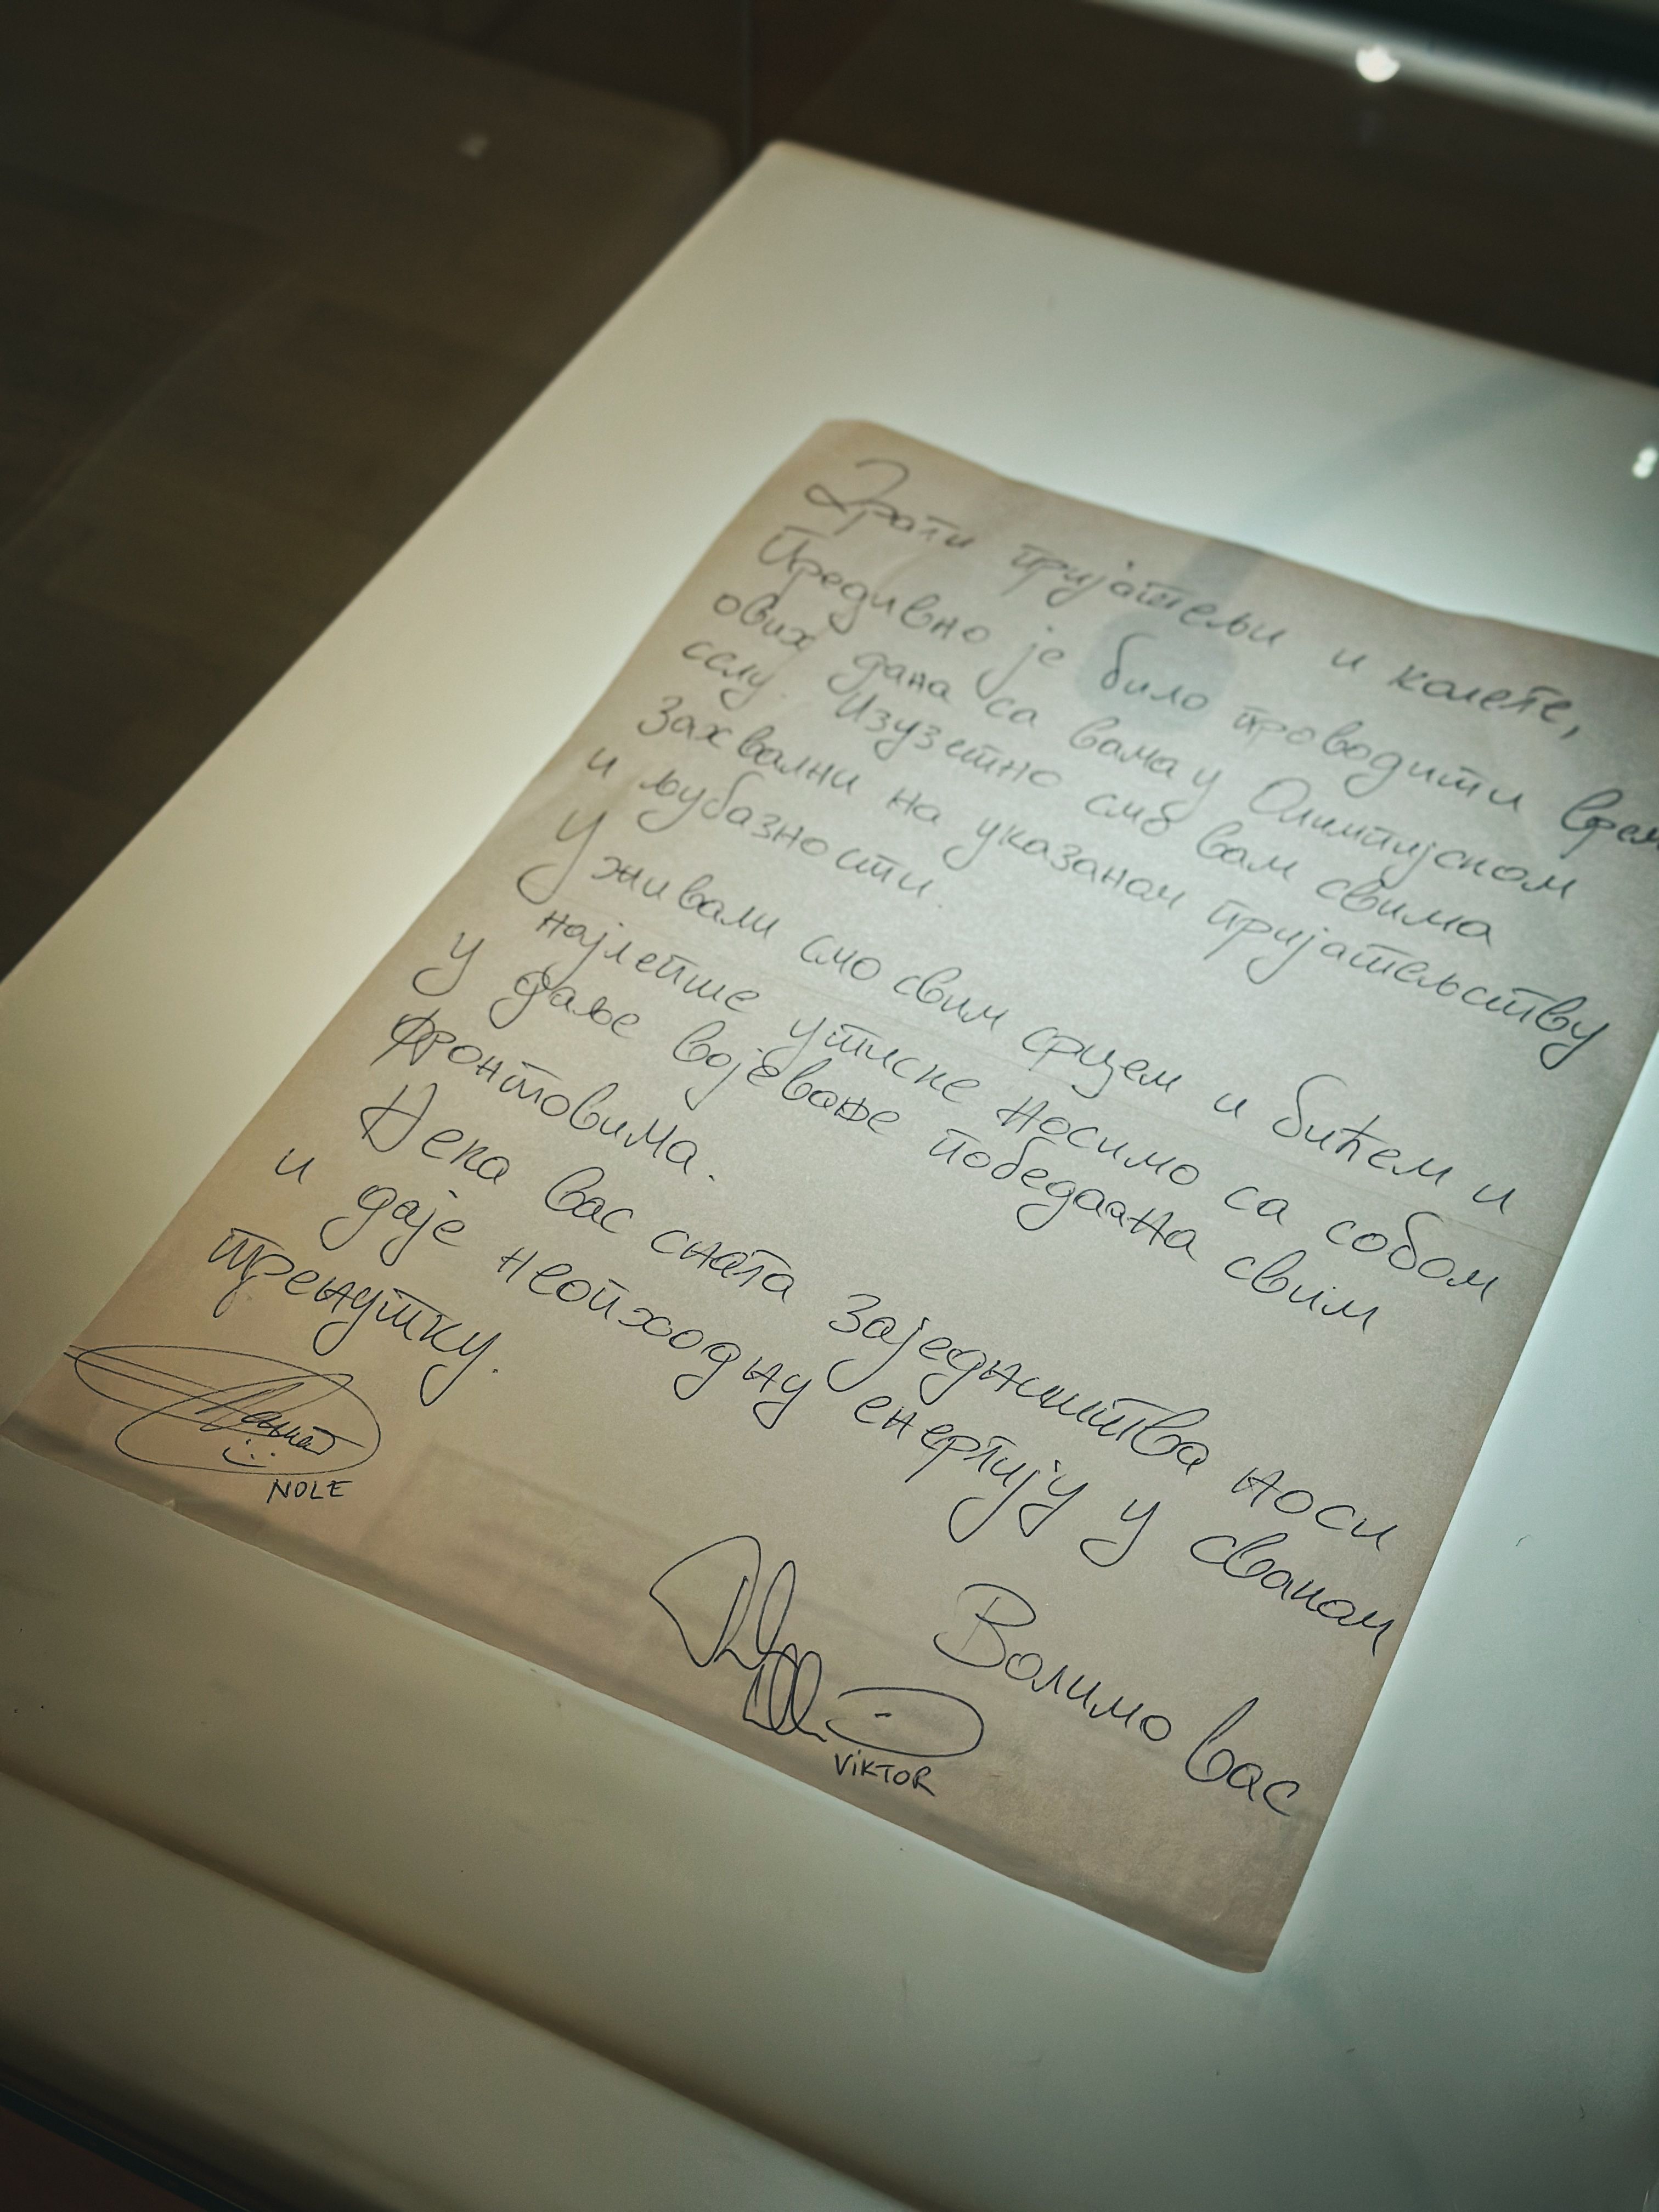 Драги пријатељи и колеге,
Предивно је било проводити врем
ових дана са вама у Олимпијском
селу. Изузетно смо вам свима
захвални на указаном пријатељству
и љубазности.
Уживали смо свим срцем и бићем и
најлепше утиске носимо са собом
у даље војевање победаана свим
фронтовима.
Нека вас снага заједништва носи
и даје неопходну енергију у сваком
тренутку.
Волимо вас
NOLE
VIKTOR